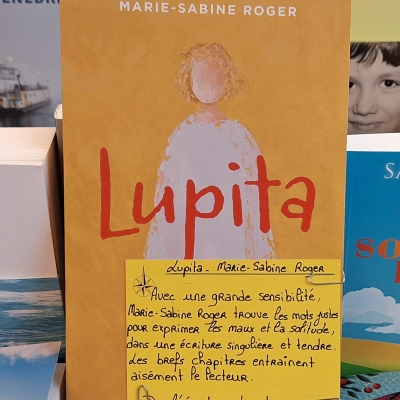 MARIE-SABINE ROGER
Lupita
Lupita - Marie-Sabine Roger
Avec une grande sensibilité,
Marie-Sabine Roger trouve les mots justes
pour exprimer les maux et la solitude,
dans une écriture singulière et tendre.
Les brefs chapitres entraînent
aisément le lecteur.
SA
so